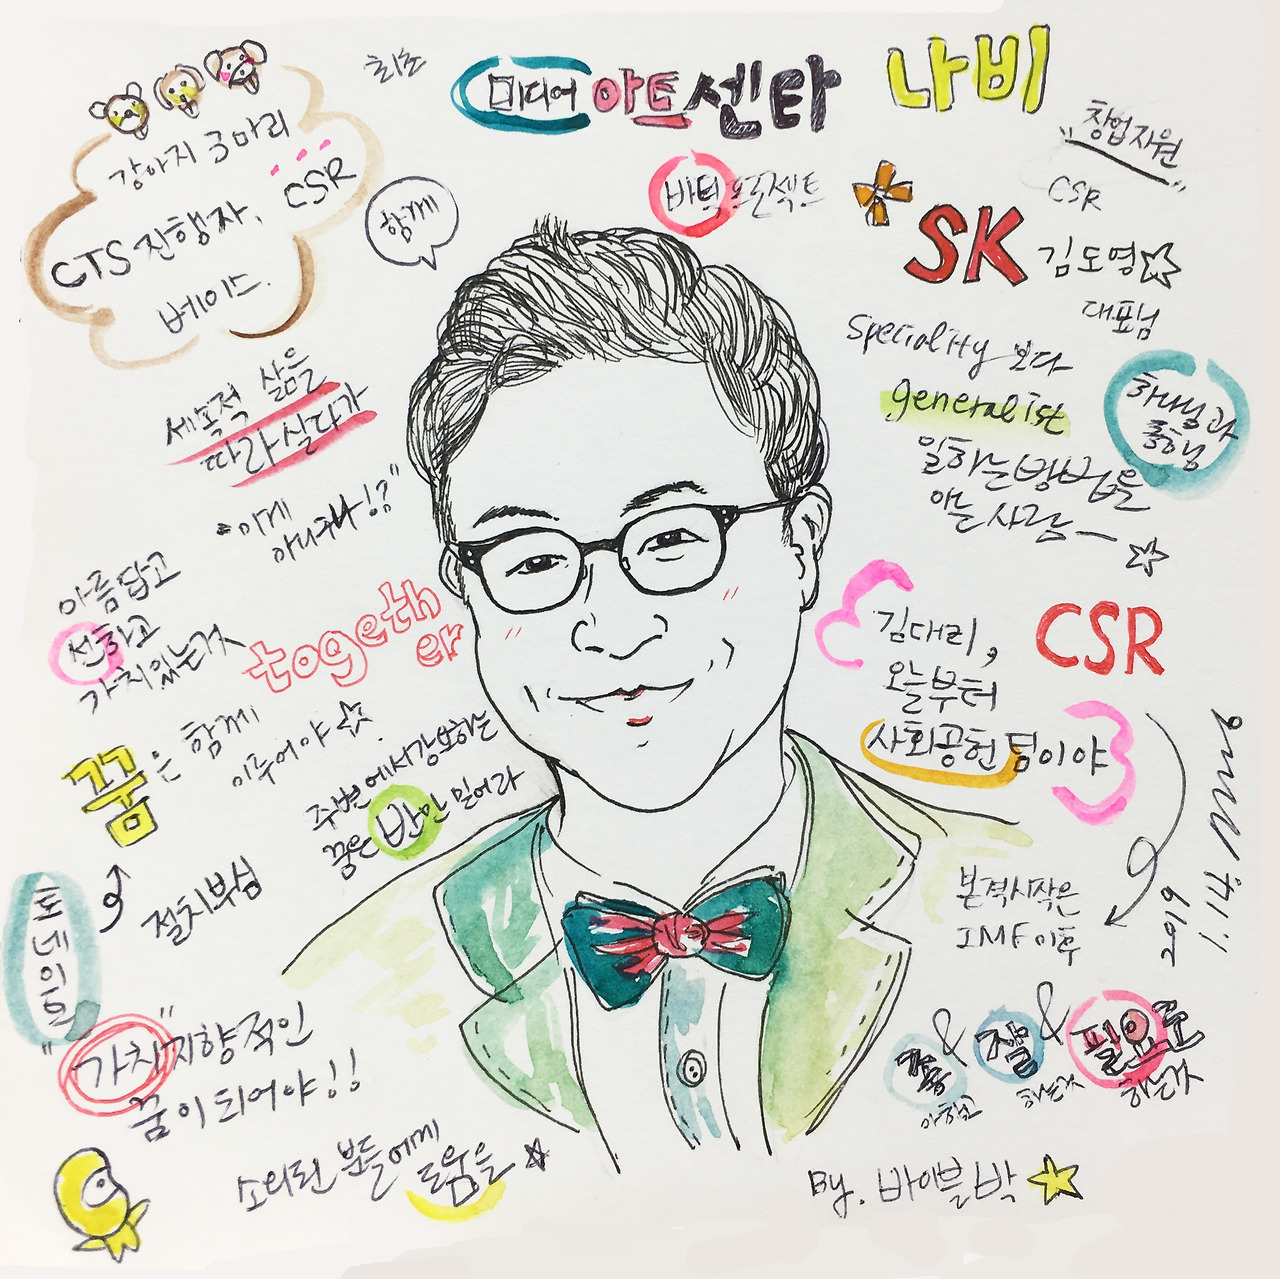 최초
미디어 아트 센타 나비
"창업지원"
CSR
바틱 프로젝트
SK 김도영
대표님
강아지 3마리
CSR
CTS 진행자,
베이스.
함께
speciality 보다
generalist
일하는 방법을
아는 사람~
하나님과
동행
세속적 삶은
따라 살다가
"이게
아니구나!?"
아름답고
선하고
가치있는 것
together
꿈은 함께
이루어야
주변에서 강요하는
꿈은 반만 믿어라
절치부심
도네이온
"가치"지향적인
꿈이 되어야!!
소외된 분들에게
도움을
김대리,
오늘부터
사회공헌팀이야
CSR
본격시작은
IMF 이후
2019
1.14
& 잘 & 필요로
하는가
하는가
By. 바이블박